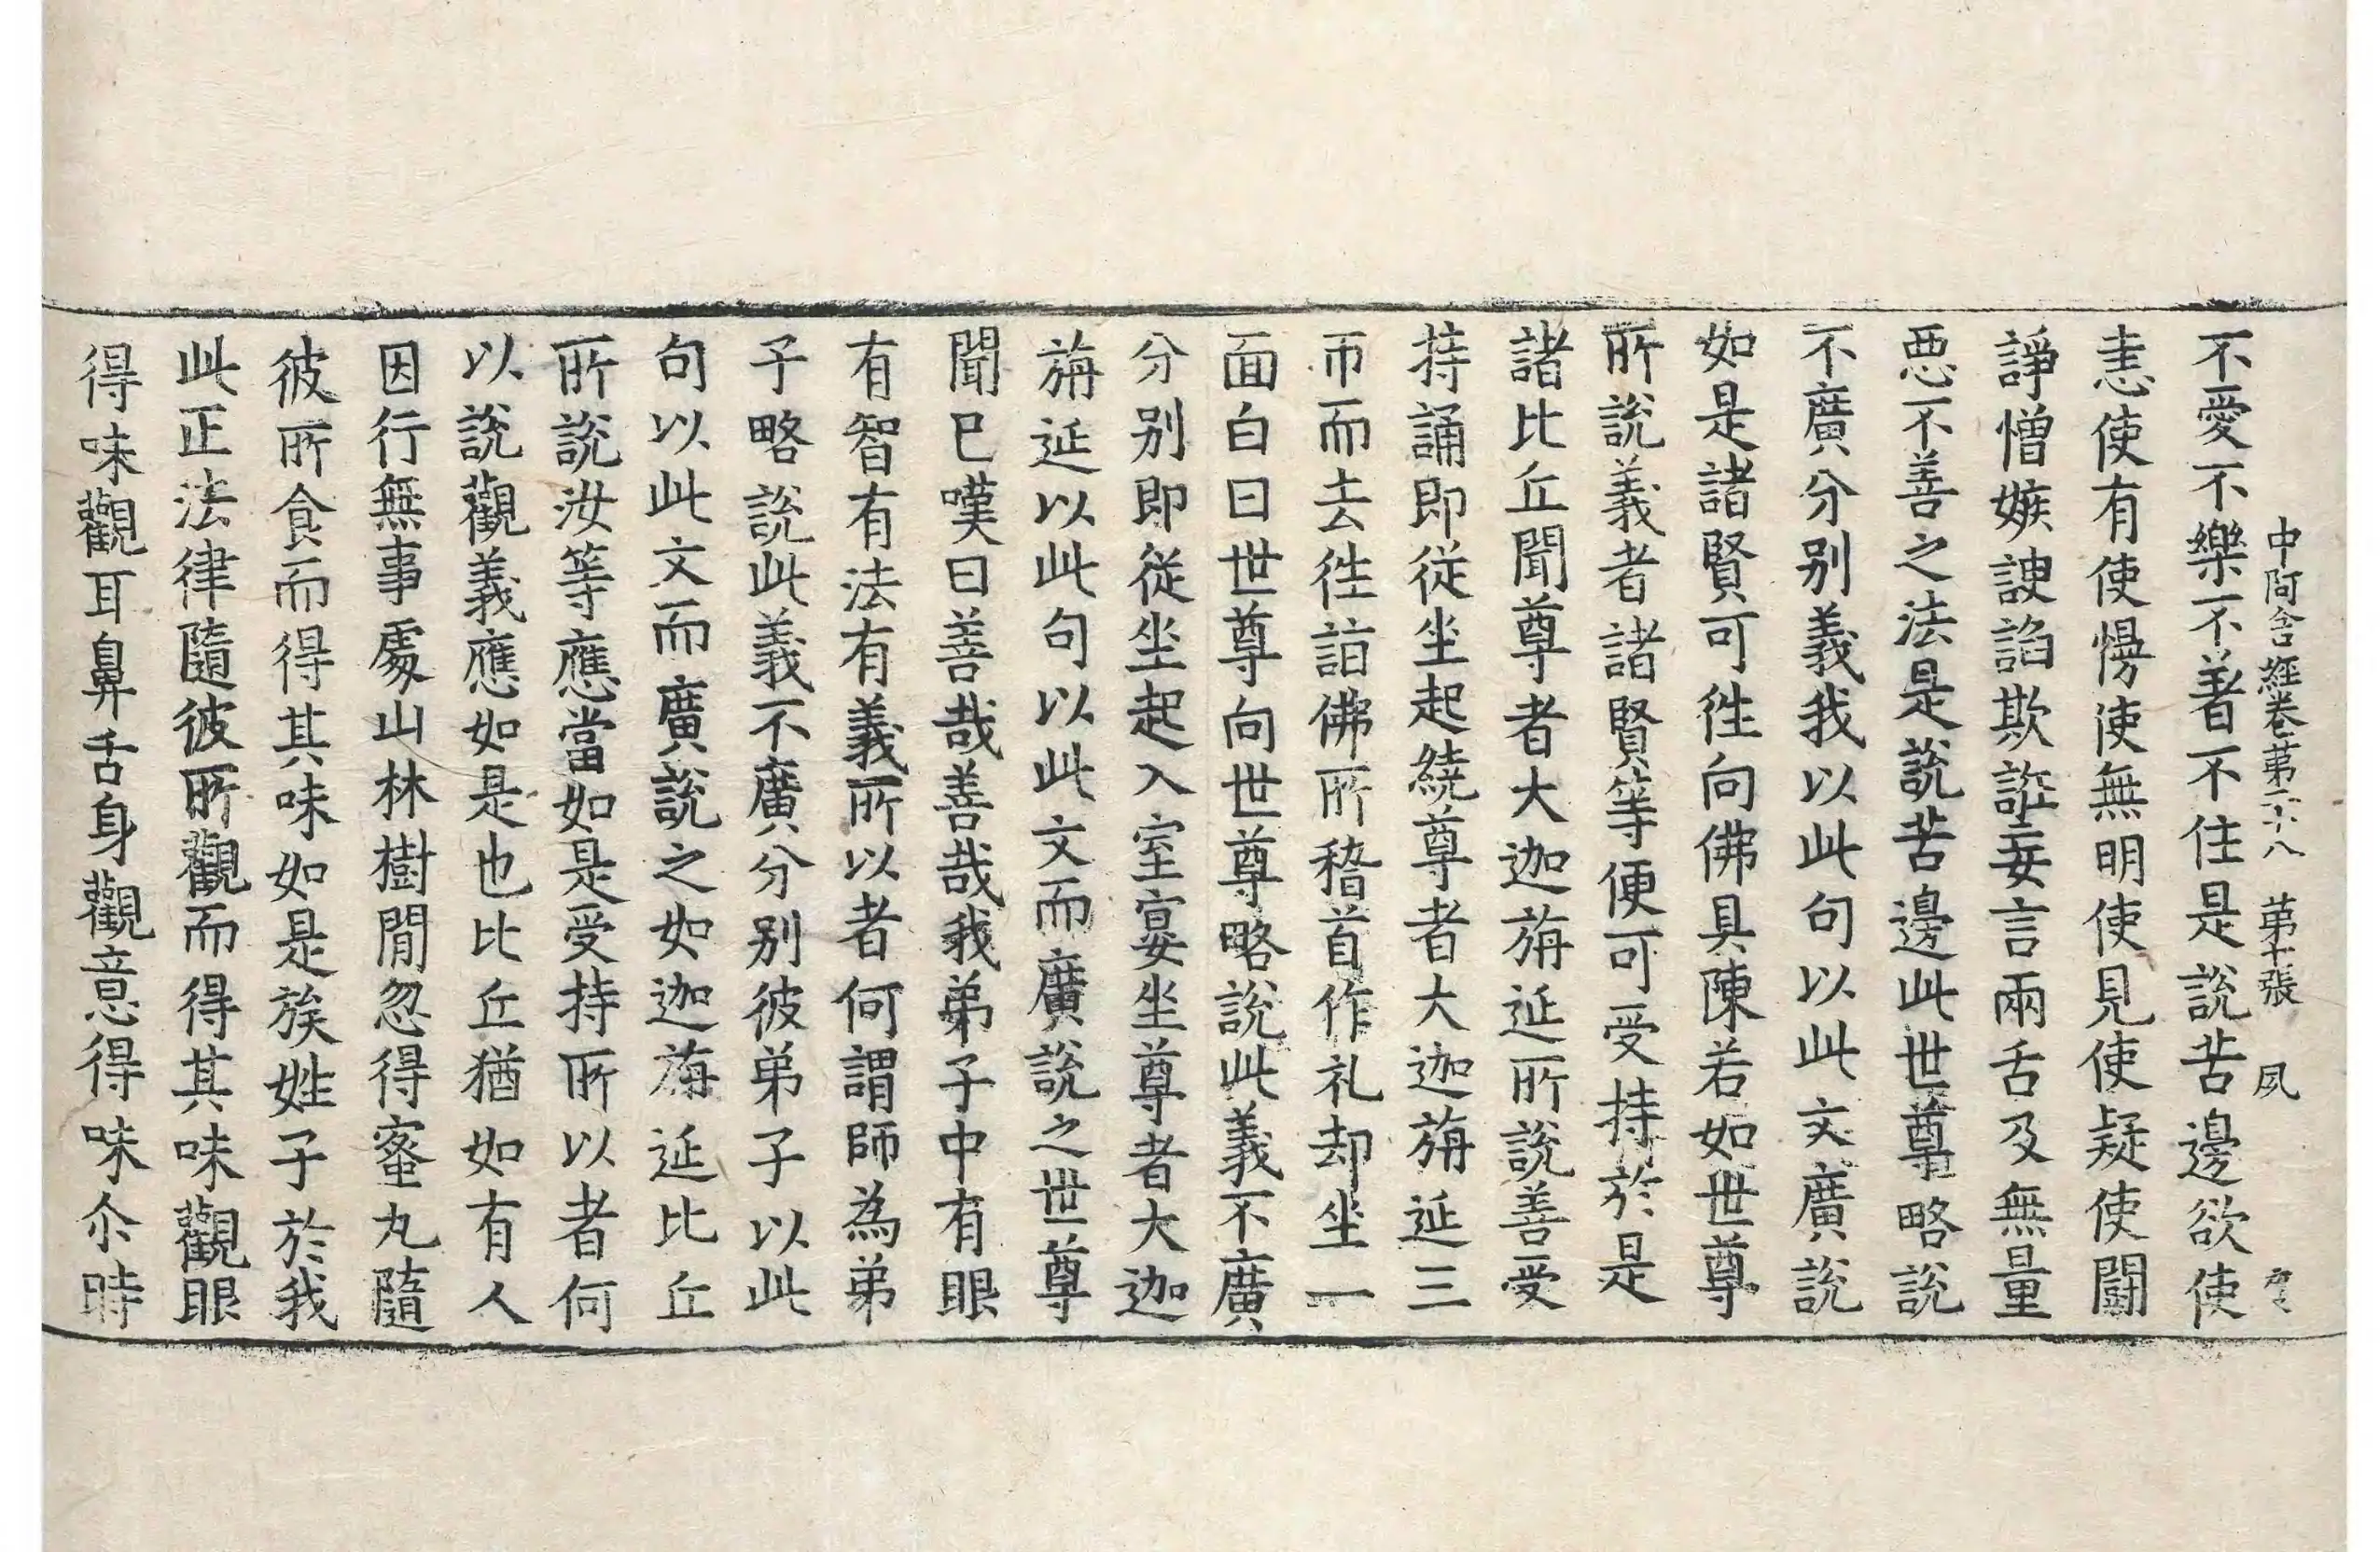 中阿含經卷第二十八 第十張 夙
不愛不樂不著不住是說苦邊欲使
恚使有使慢使無明使見使疑使鬪
諍憎嫉諛諂欺誑妄言兩舌及無量
惡不善之法是說苦邊此世尊略說
不廣分别義我以此句以此文廣說
如是諸賢可徃向佛具陳若如世尊
所說義者諸賢等便可受持於是
諸比丘聞尊者大迦旃延所說善受
持誦即從坐起繞尊者大迦旃延三
帀而去徃詣佛所稽首作礼却坐一
面白曰世尊向世尊略說此義不廣
分别即從坐起入室宴坐尊者大迦
旃延以此句以此文而廣說之世尊
聞已嘆曰善哉善哉我弟子中有眼
有智有法有義所以者何謂師為弟
子略說此義不廣分别彼弟子以此
句以此文而廣說之如迦旃延比丘
所說汝等應當如是受持所以者何
以說觀義應如是也比丘猶如有人
因行無事處山林樹閒忽得蜜丸隨
彼所食而得其味如是族姓子於我
此正法律隨彼所觀而得其味觀眼
得味觀耳鼻舌身觀意得味尒時